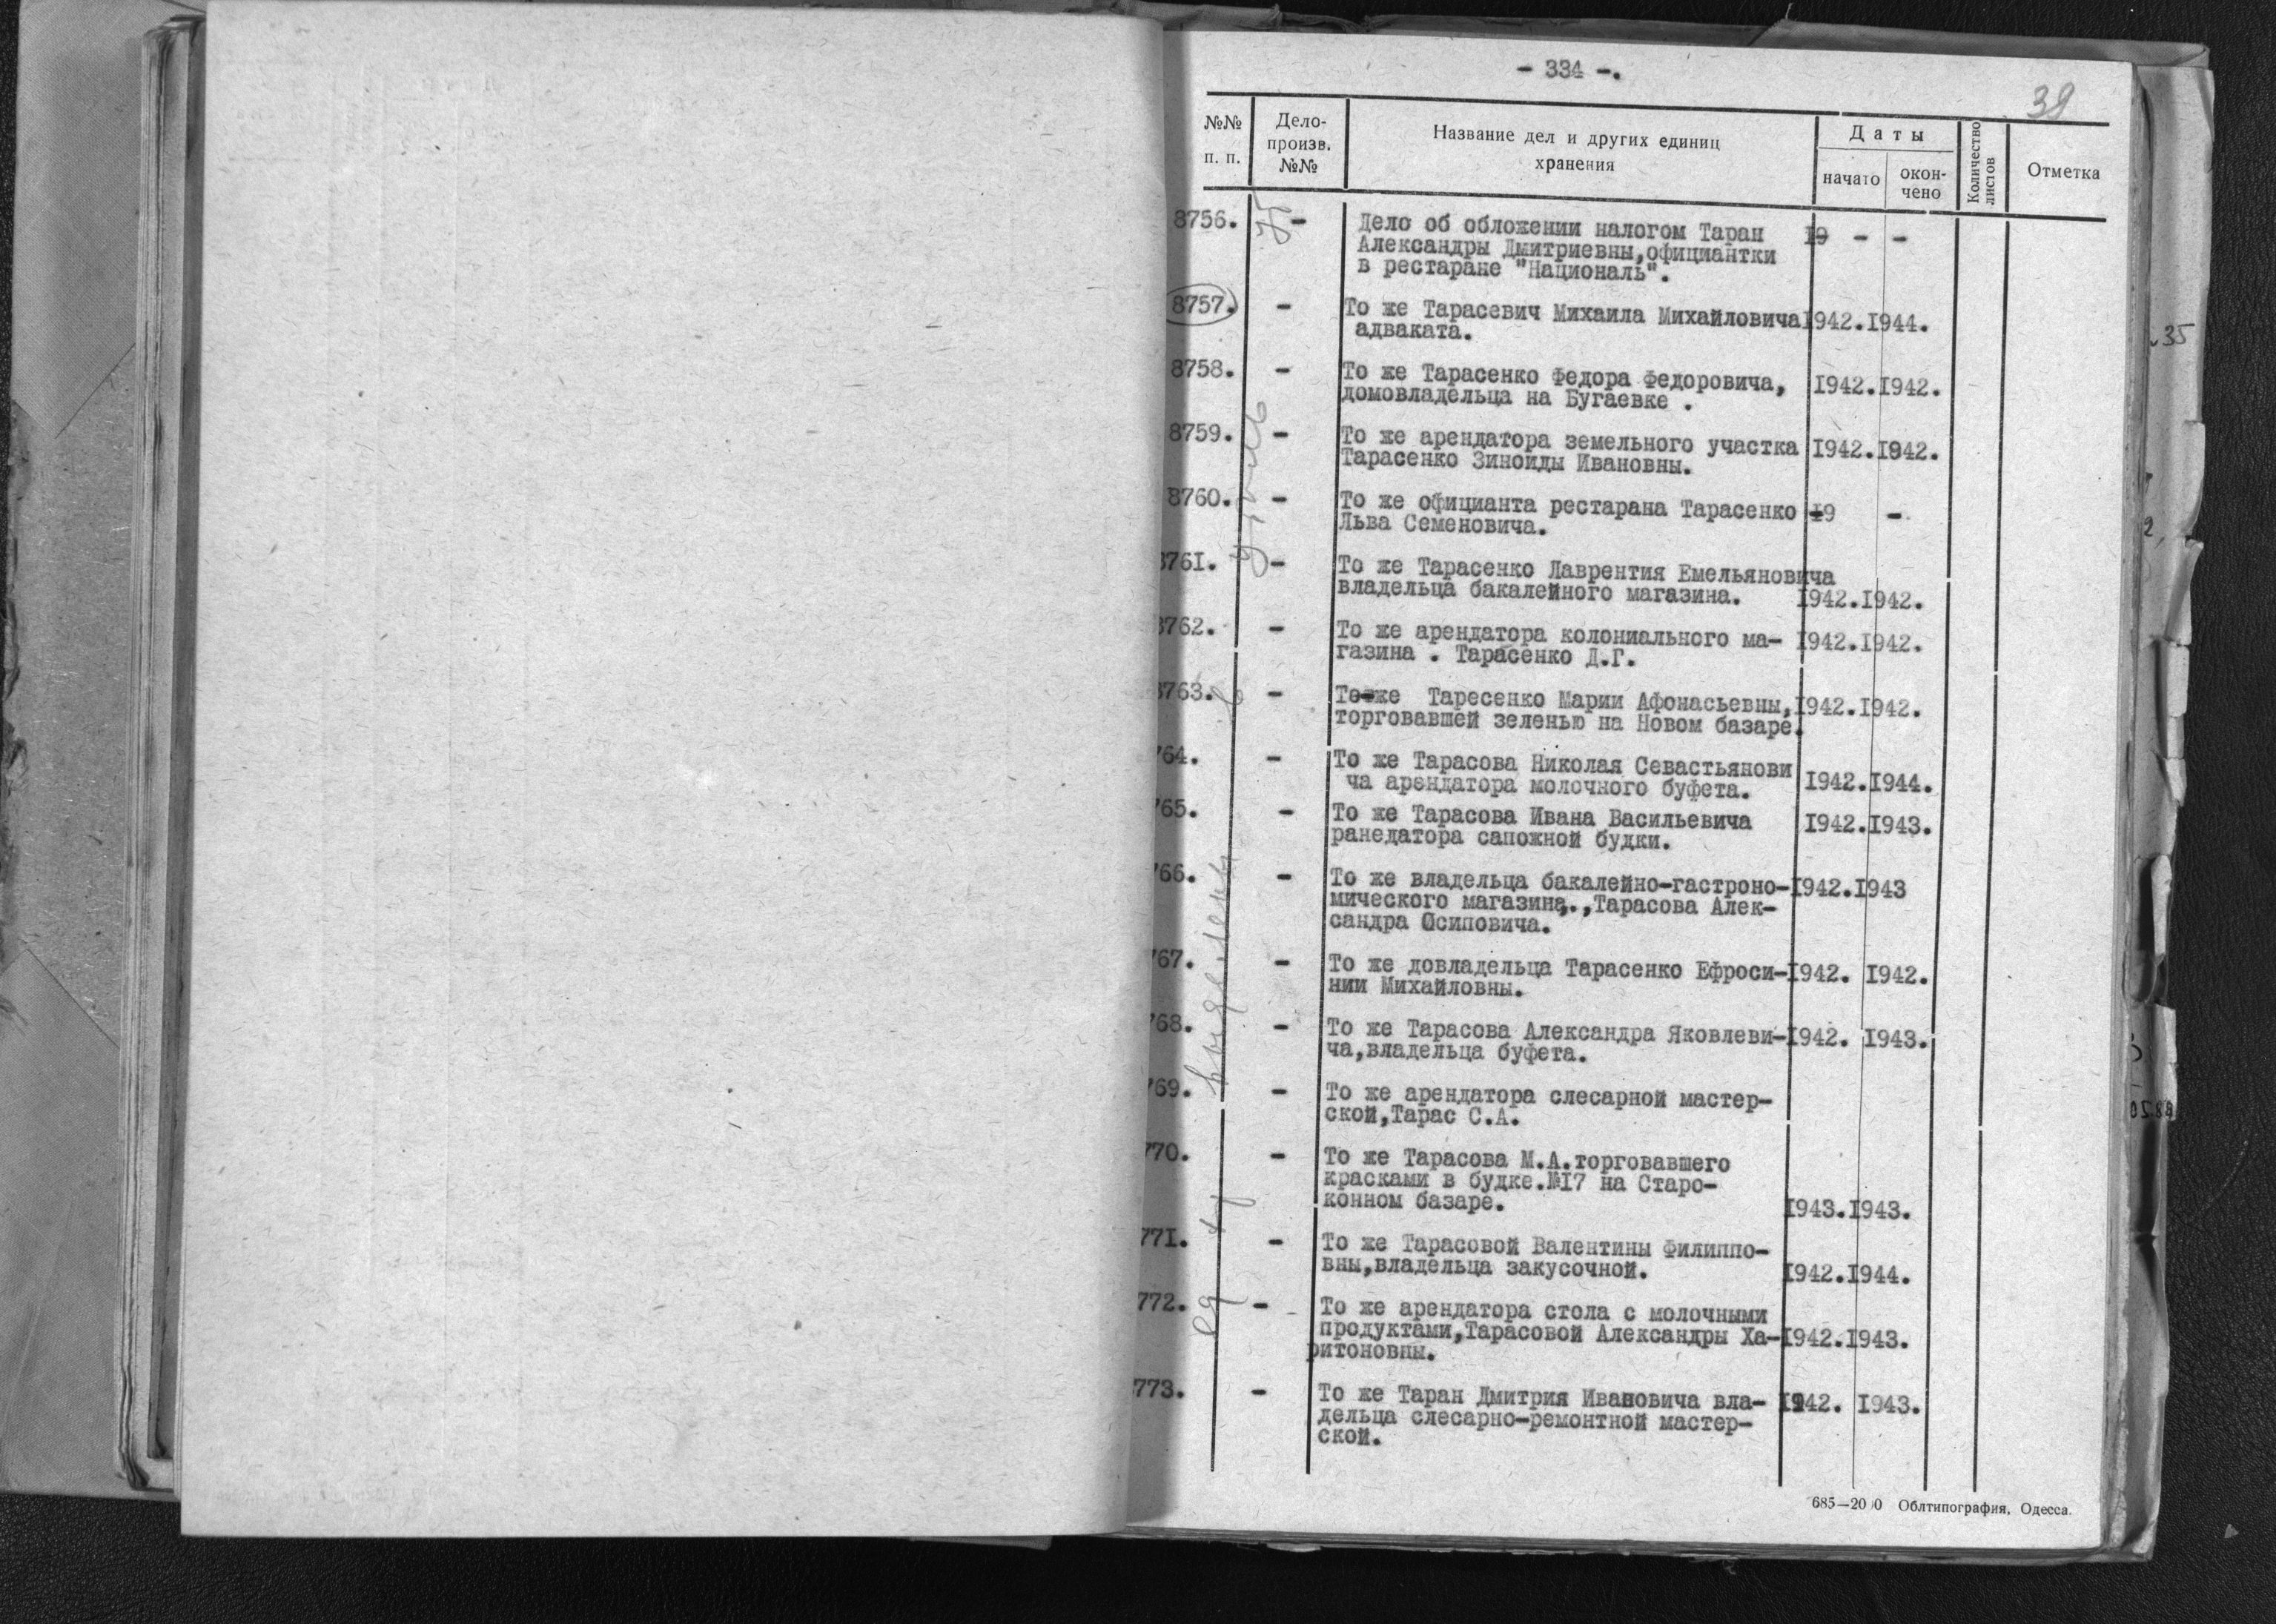 - 334 -.
39
№№ п. п.
Дело-произв. №№
Название дел и других единиц хранения
Даты
начато
окон-чено
Количество листов
Отметка
8756. - Дело об обложении налогом Таран 19 - -
Александры Дмитриевны,официантки
в рестаране "Националь".
8757. - То же Тарасевич Михаила Михайловича 1942.1944.
адваката.
8758. - То же Тарасенко Федора Федоровича, 1942.1942.
домовладельца на Бугаевке .
8759. - То же арендатора земельного участка 1942.1942.
Тарасенко Зиноиды Ивановны.
8760. - То же официанта рестарана Тарасенко 19 -
Льва Семеновича.
8761. - То же Тарасенко Лаврентия Емельяновича
владельца бакалейного магазина. 1942.1942.
8762. - То же арендатора колониального ма- 1942.1942.
газина . Тарасенко Д.Г.
8763. - То же Таресенко Марии Афонасьевны, 1942.1942.
торговавшей зеленью на Новом базаре.
764. - То же Тарасова Николая Севастьянови 1942.1944.
ча арендатора молочного буфета.
765. - То же Тарасова Ивана Васильевича 1942.1943.
ранедатора сапожной будки.
766. - То же владельца бакалейно-гастроно- 1942.1943
мического магазина.,Тарасова Алек-
сандра Осиповича.
767. - То же довладельца Тарасенко Ефроси- 1942. 1942.
нии Михайловны.
768. - То же Тарасова Александра Яковлеви- 1942. 1943.
ча,владельца буфета.
769. - То же арендатора слесарной мастер-
ской,Тарас С.А.
770. - То же Тарасова М.А.торговавшего
красками в будке.№17 на Старо-
конном базаре. 1943.1943.
771. - То же Тарасовой Валентины Филиппо-
вны,владельца закусочной. 1942.1944.
772. - То же арендатора стола с молочными
продуктами,Тарасовой Александры Ха- 1942.1943.
ритоновны.
773. - То же Таран Дмитрия Ивановича вла- 1942. 1943.
дельца слесарно-ремонтной мастер-
ской.
Облтипография, Одесса.
35